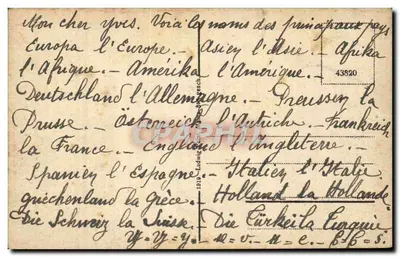 Mon cher Yves. Voici les noms des principaux pays
Europa l'Europe. – Asien l'Asie. – Afrika
l'Afrique. – Amérika l'Amérique. –
43820
Deutschland l'Allemagne. – Preussen la
Prusse. – Osterreich l'Autriche. – Frankreich
la France. – England l'Angleterre. –
Spanien l'Espagne. Italien l'Italie
griechenland la Grèce. Holland la Hollande
Die Schweiz la Suisse. Die Türkei la Turquie